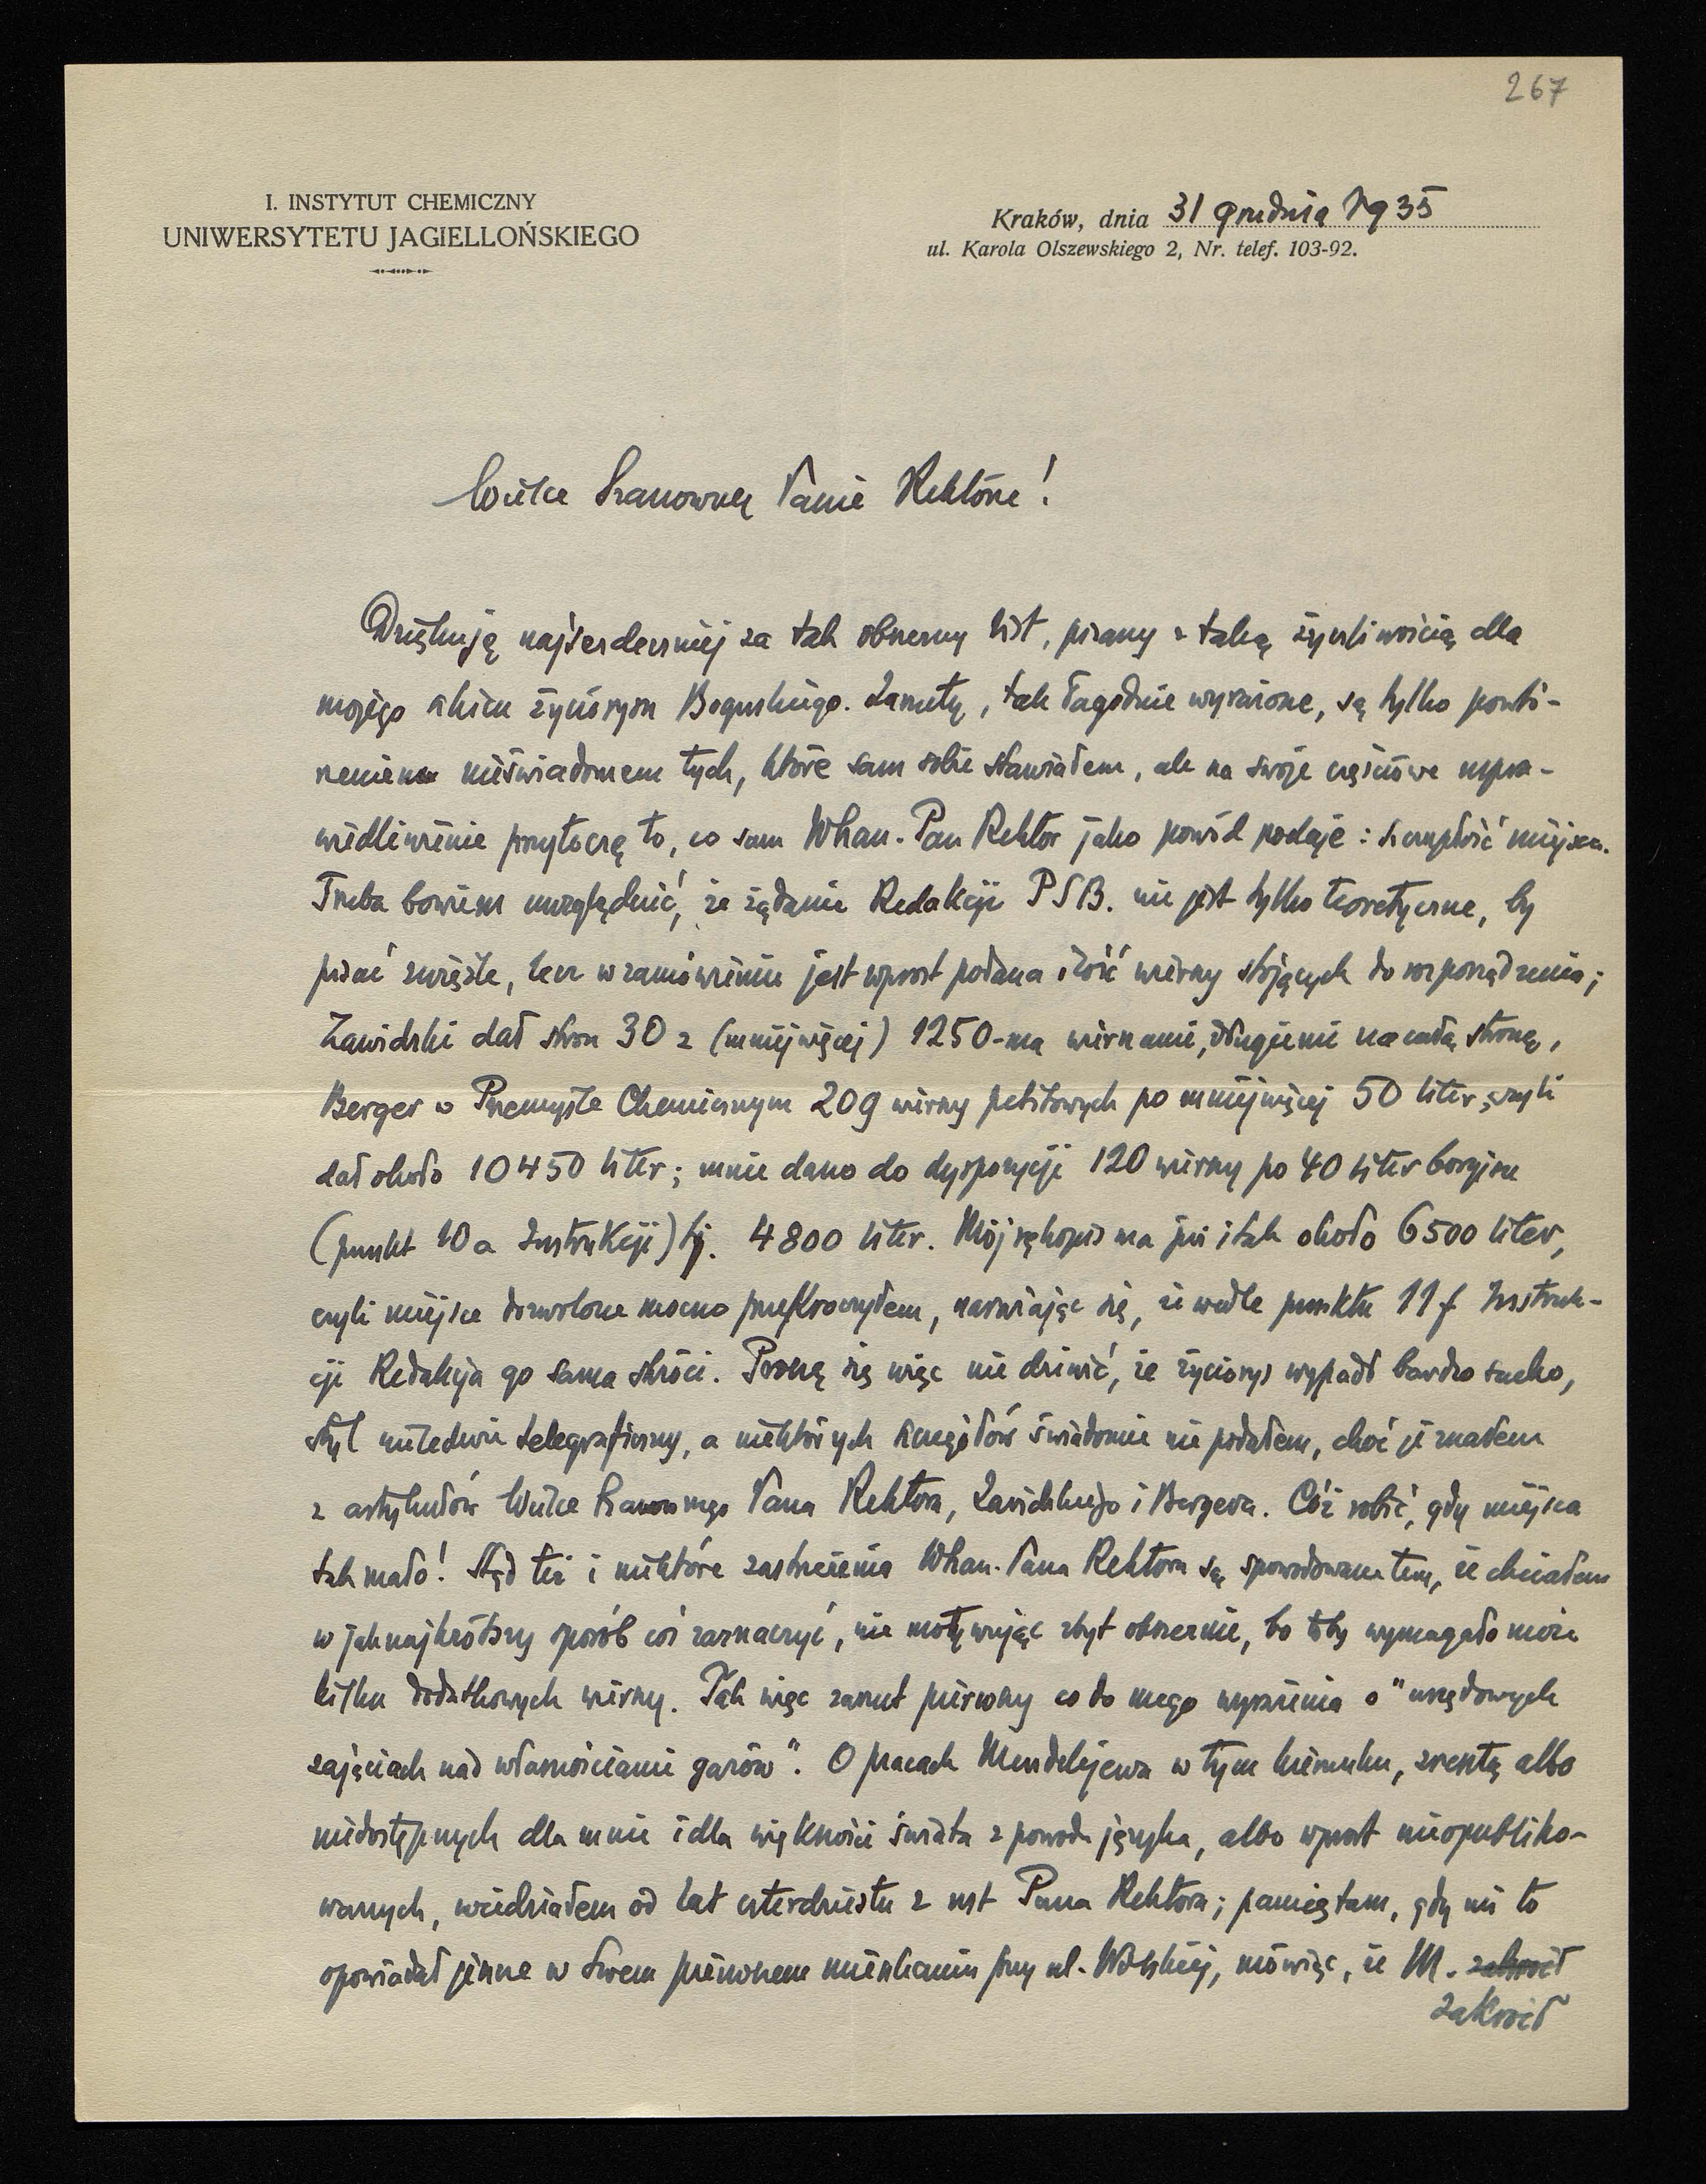 267
I. INSTYTUT CHEMICZNY
UNIWERSYTETU JAGIELLOŃSKIEGO
Kraków, dnia 31 grudnia 1935
ul. Karola Olszewskiego 2, Nr. telef. 103-92.
Wielce Szanowny Panie Rektorze!
Dziękuję najserdeczniej za tak obszerny list, pisany z taką życzliwością dla
mojego szkicu życiorysu Boguskiego. Zarzuty, tak łagodnie wyrażone, są tylko powtó-
rzeniem nieświadomem tych, które sam sobie stawiałem, ale na swoje częściowe uspra-
wiedliwienie przytoczę to, co sam WPan. Pan Rektor jako powód podaje: szczupłość miejsca.
Trzeba bowiem uwzględnić, że żądanie Redakcji PSB. nie jest tylko teoretyczne, by
pisać zwięźle, lecz w zamówieniu jest wprost podana ilość wierszy stojących do rozporządzenia;
Zawidzki dał stron 30 z (mniejwięcej) 1250-ma wierszami, długiemi na całą stronę,
Berger w Przemyśle Chemicznym 209 wierszy petitowych po mniejwięcej 50 liter, czyli
dał około 10450 liter; mnie dano do dyspozycji 120 wierszy po 40 liter borgisu
(punkt 10a Instrukcji) tj. 4800 liter. Mój rękopis ma już i tak około 6500 liter,
czyli miejsce dozwolone mocno przekroczyłem, narażając się, że wedle punktu 11f Instruk-
cji Redakcja go sama skróci. Proszę się więc nie dziwić, że życiorys wypadł bardzo sucho,
styl nieledwie telegraficzny, a niektórych szczegółów świadomie nie podałem, choć je znałem
z artykułów Wielce Szanownego Pana Rektora, Zawidzkiego i Bergera. Cóż robić, gdy miejsca
tak mało! Stąd też i niektóre zastrzeżenia WPan. Pana Rektora są spowodowane tem, że chciałem
w jaknajkrótszy sposób coś zaznaczyć, nie motywując zbyt obszernie, bo toby wymagało może
kilku dodatkowych wierszy. Tak więc zarzut pierwszy co do mego wyrażenia o "urzędowych
zajęciach nad własnościami gazów". O pracach Mendelejewa w tym kierunku, zresztą albo
niedostępnych dla mnie i dla większości świata z powodu języka, albo wprost nieopubliko-
wanych, wiedziałem od lat czterdziestu z ust Pana Rektora; pamiętam, gdy mi to
opowiadał jeszcze w Swem pierwszem mieszkaniu przy ul. Wolskiej, mówiąc, że M. zakroił
zakroił